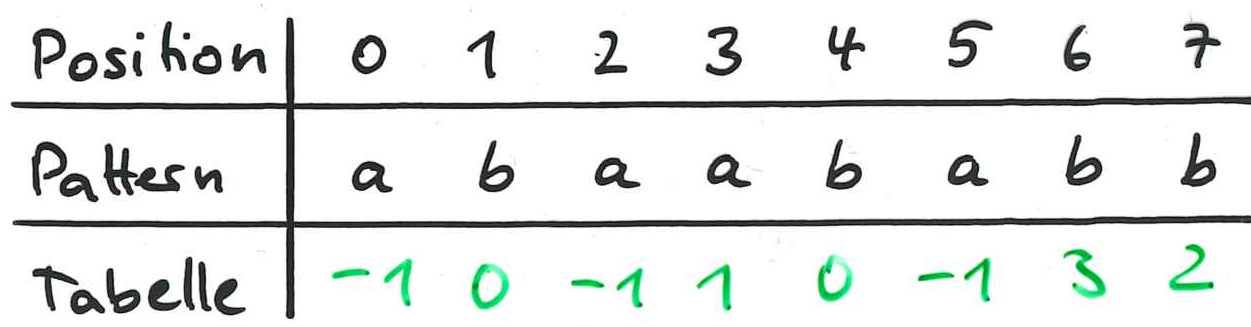 Position 0 1 2 3 4 5 6 7
Pattern a b a a b a b b
Tabelle -1 0 -1 1 0 -1 3 2